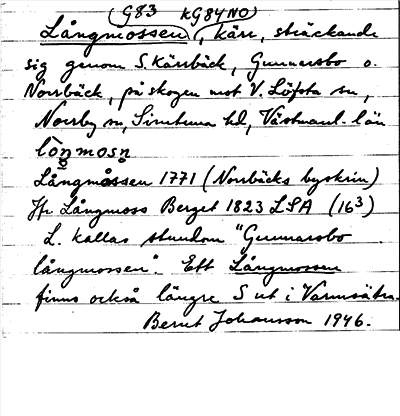 (G83 KG84NO)
Långmossen, kärr, sträckande
sig genom S. Kärrbäck, Gunnarsbo o.
Norrbäck, på skogen mot V. Löfsta sn,
Norrby sn, Simtuna hd, Västmanl. län
lòŋmosn
Långmåssen 1771 (Norrbäcks byskrin)
Jfr Långmoss Berget 1823 LSA (16³)
L. kallas stundom "Gunnarsbo
långmossen". Ett Långmossen
finns också längre S ut i Varmsätra.
Bernt Johansson 1946.